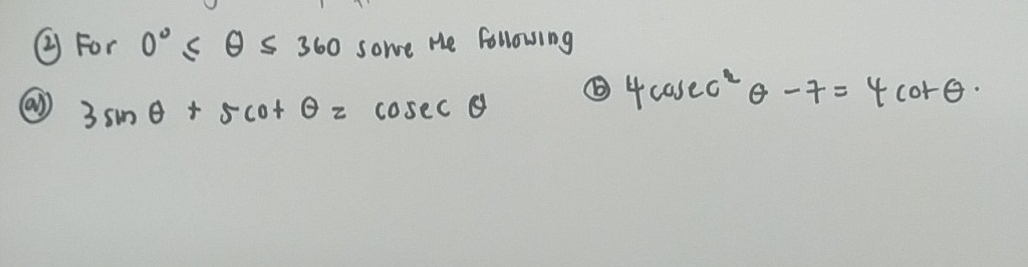 ② For 0° ≤ θ ≤ 360 solve the following
(a) 3 sin θ + 5 cot θ = cosec θ
(b) 4 cosec² θ - 7 = 4 cot θ.